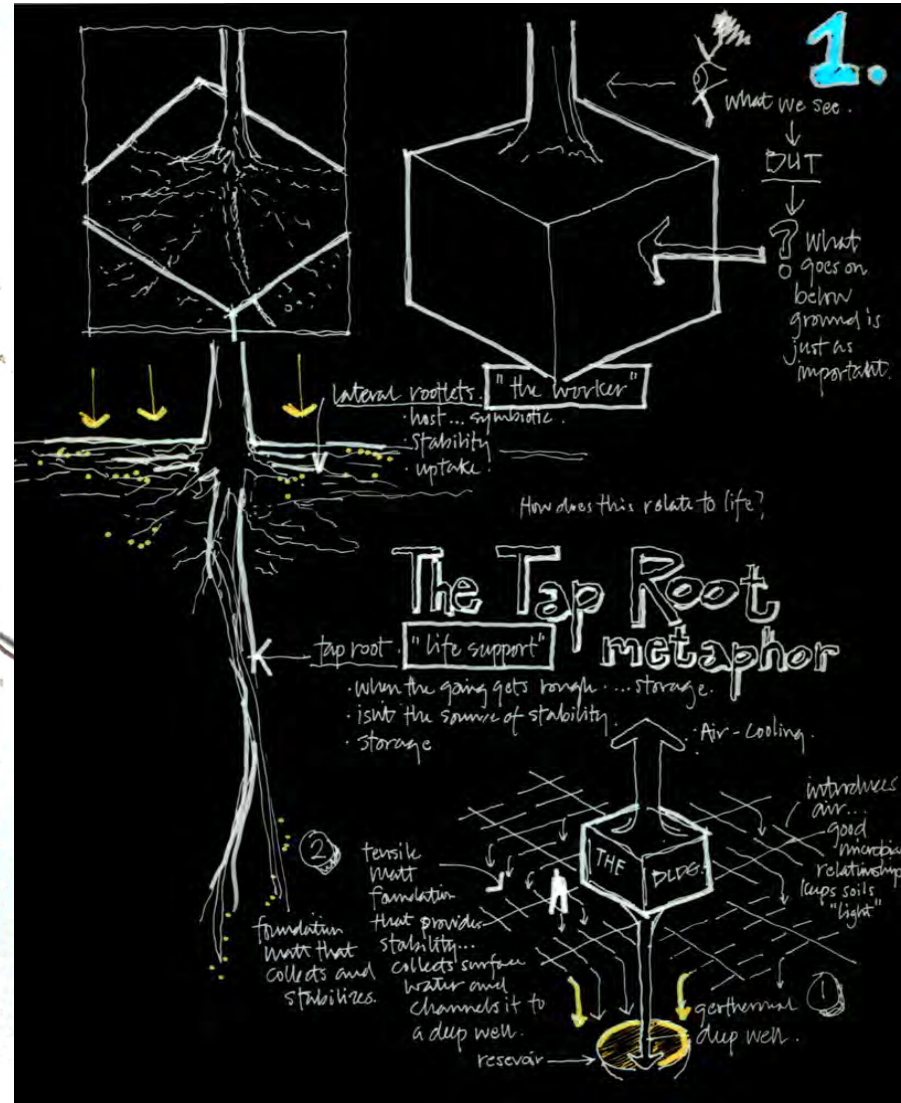 1.
what we see.
BUT
? What
goes on
below
ground is
just as
important.
lateral rootlets. "the worker"
· host... symbiotic.
· stability
· uptake.
How does this relate to life?
The Tap Root
metaphor
tap root. "life support"
· when the going gets rough....storage.
· isn't the source of stability.
· storage
Air-cooling.
introduces
air...
good
microbial
relationship
keeps soils
"light"
THE BLDG.
2
tensile
matt
foundation
that provides
stability...
collects surface
water and
channels it to
a deep well.
foundation
matt that
collects and
stabilizes.
1
geothermal
deep well.
resevoir